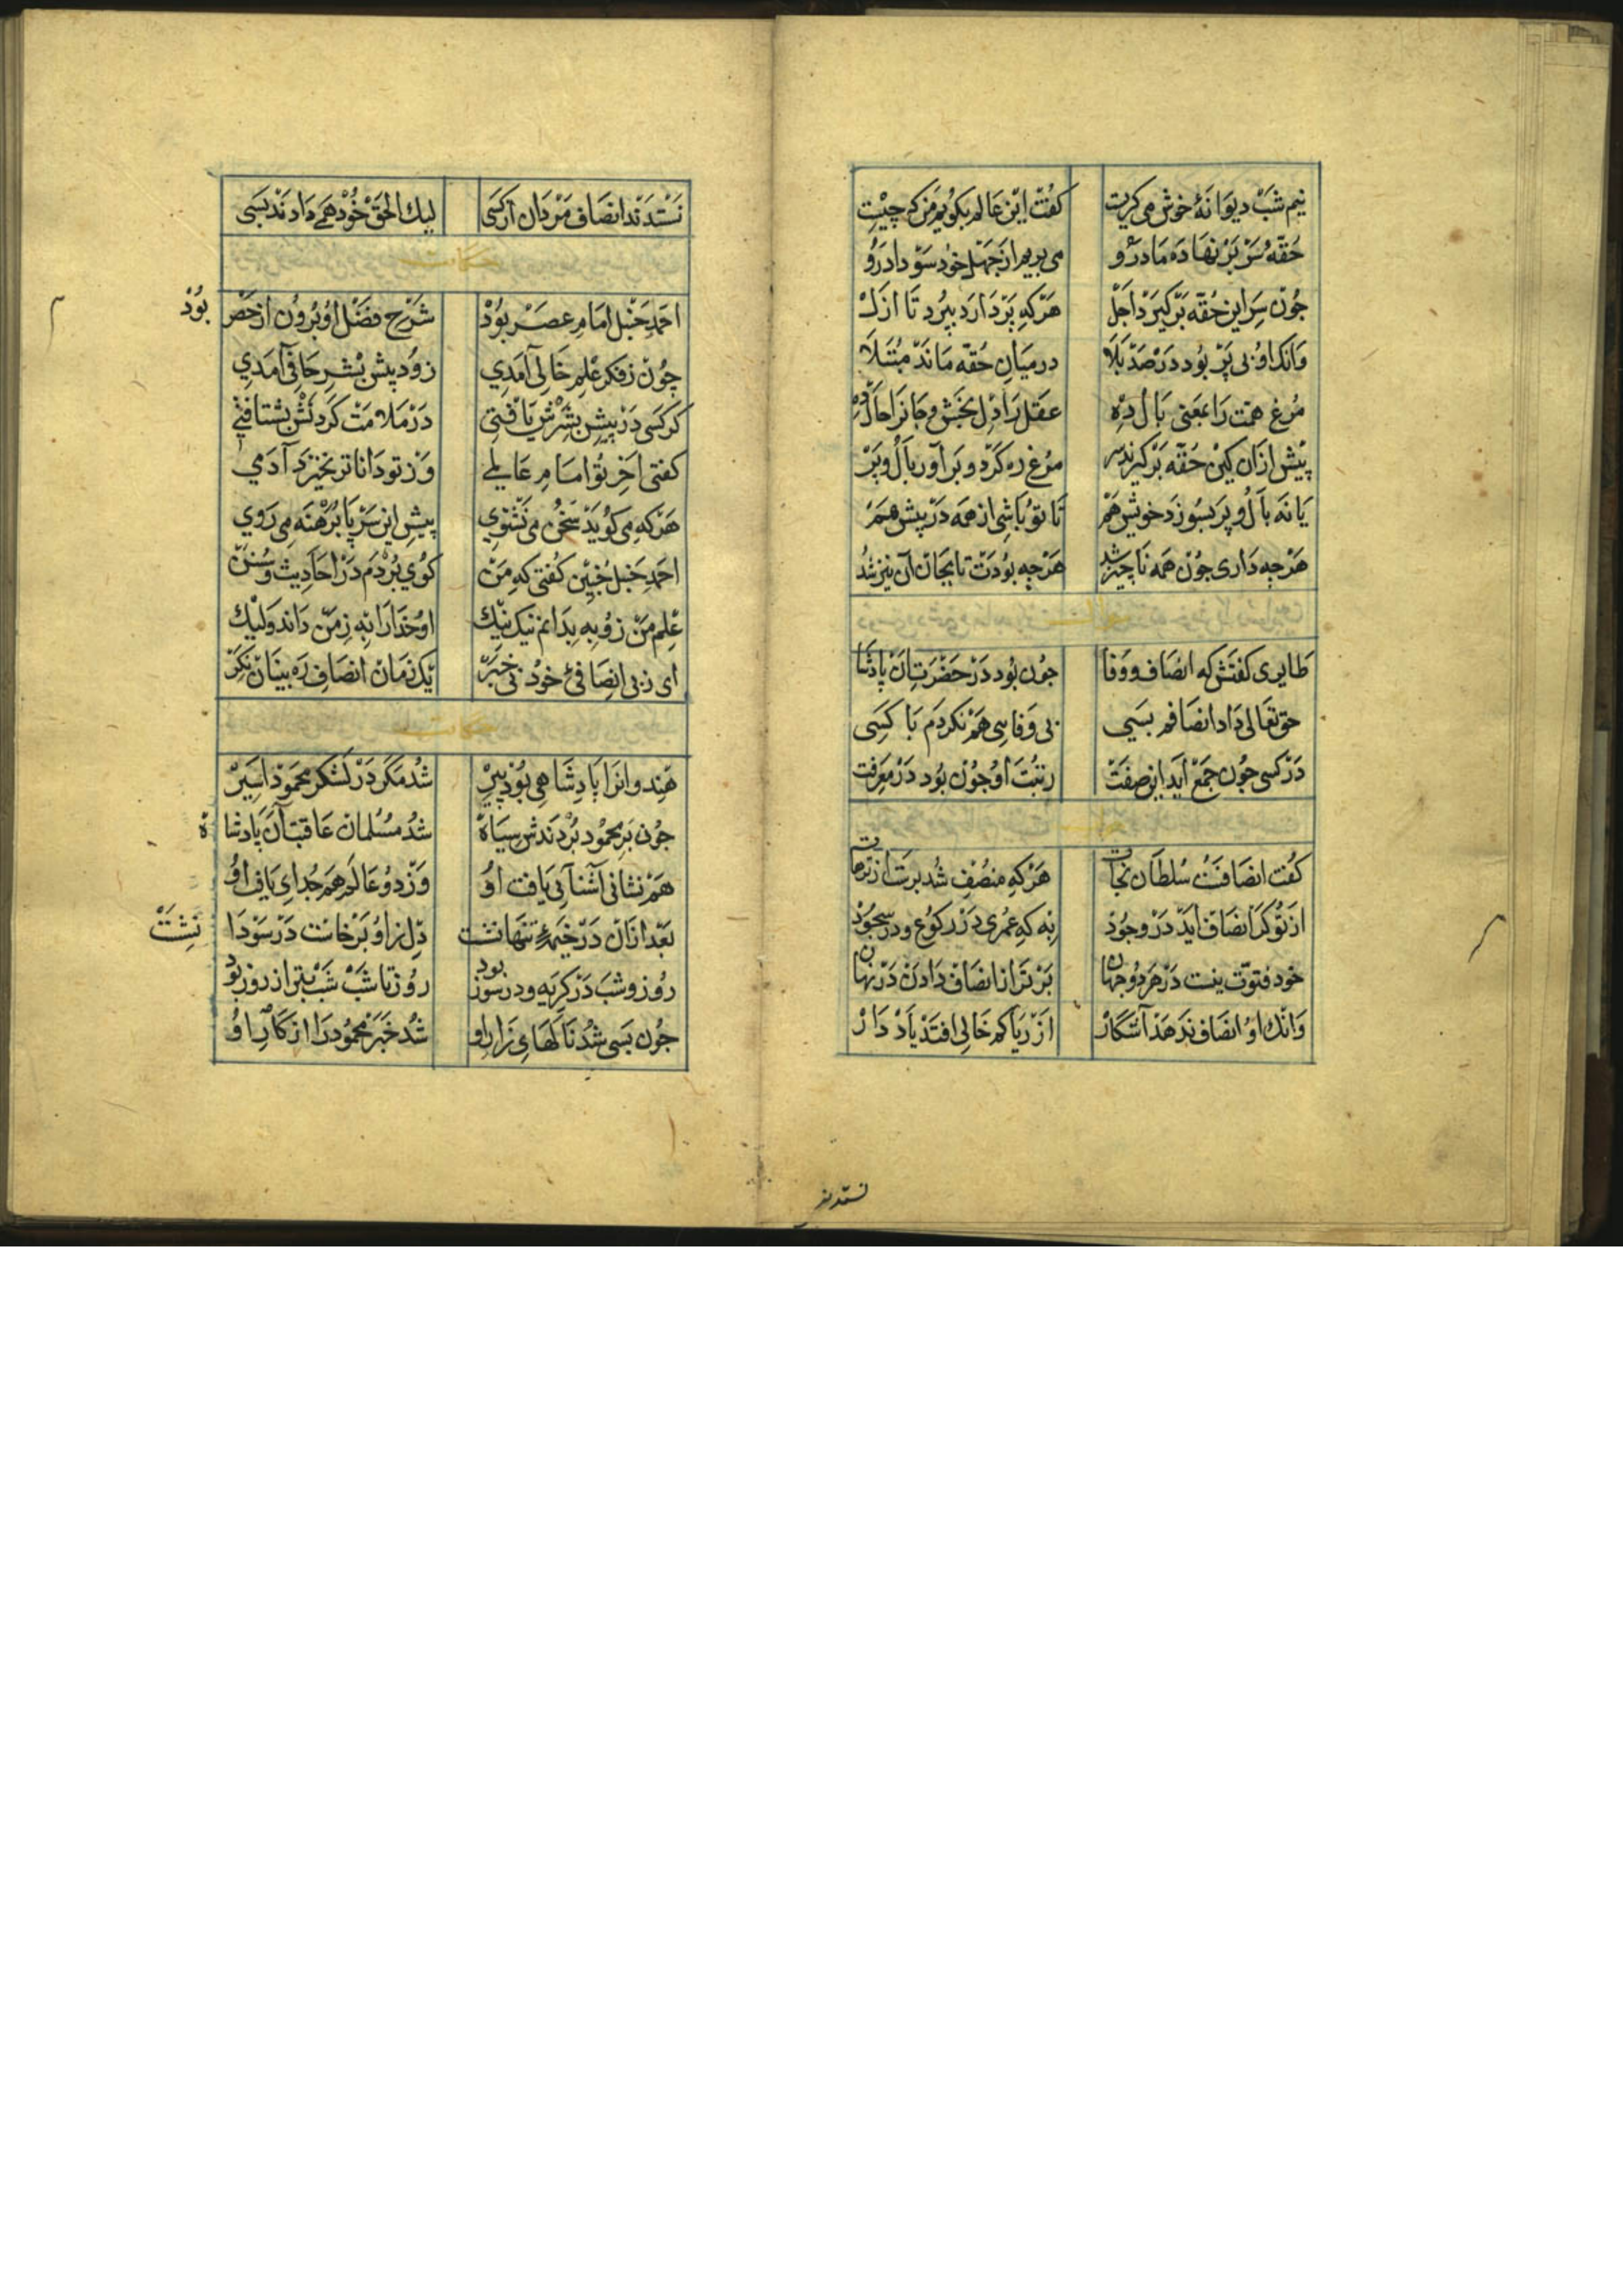 نیم شب دیوانهٔ خوش می کریت کفت این عالم بکویم من که چیست
حقهٔ سر بر نهاده ما درو می پزیم از جهل خود سودا درو
جون سر این حقه برکیرد اجل هرکه پر دارد بپرد تا ازل
وانک او بی پر بود در صد بلا در میان حقه ماند مبتلا
مرغ همت را بمعنی بال ده عقل را دل بخش و جانرا حال ده
پیش ازان کین حقه برکیرند سر مرغ ره کرد و براور بال و پر
یا نه بال و پر بسوز و خویش هم تا تو باشی از همه در پیش هم
هرچه داری جون همه ناچیز شد هرچه بودت تا بجان آن نیز شد
طایری کفتش که انصاف و وفا جون بود در حضرت آن پادشا
حق تعالی داد انصافم بسی بی وفایی هم نکردم با کسی
در کسی جون جمع اید این صفت رتبت او جون بود در معرفت
کفت انصافست سلطان نجات هرکه منصف شد برست از ترهات
از تو کر انصاف اید در وجود به که عمری در رکوع و در سجود
خود فتوت نیست در هر دو جهان برتر از انصاف دادن در نهان
وانک او انصاف ندهد آشکار از ریا کم خالی افتد یاد دار
نستدند
نستدند انصاف مردان از کسی لیک الحق خود همی دادند بسی
احمد حنبل امام عصر بود شرح فضل او برون از حصر بود
چون ز فکر علم خالی آمدی زود پیش بشر حافی آمدی
کر کسی در پیش بشرش یافتی در ملامت کردنش بشتافتی
کفتی اخر تو امام عالمی وز تو دانا تر نخیزد آدمی
هرکه می کوید سخن می نشنوی پیش این سر پا برهنه می روی
احمد حنبل چنین کفتی که من کوی بردم در احادیث و سنن
علم من زو به بدانم نیک نیک او خدا را به ز من داند ولیک
ای ز بی انصافی خود بی خبر یک زمان انصاف ره بینان نکر
هندوانرا پادشاهی بود پیر شد مکر در لشکر محمود اسیر
جون بر محمود بردندش سپاه شد مسلمان عاقبت آن پادشاه
هم نشانی آشنایی یافت او وز دو عالم هم جدایی یافت او
بعد ازان در خیمهٔ تنها نشست دل ازو برخاست در سودا نشست
روز و شب در کریه و در سوز بود روز تا شب شب بتر از روز بود
جون بسی شد نالهای زار او شد خبر محمود را از کار او